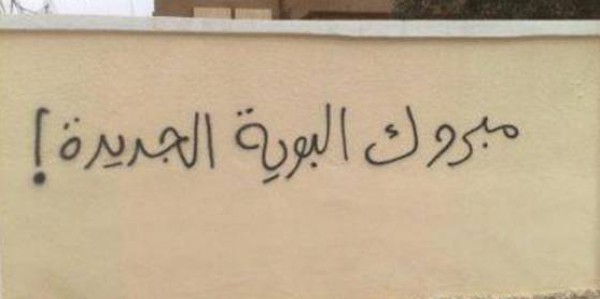 مبروك البوية الجديدة !